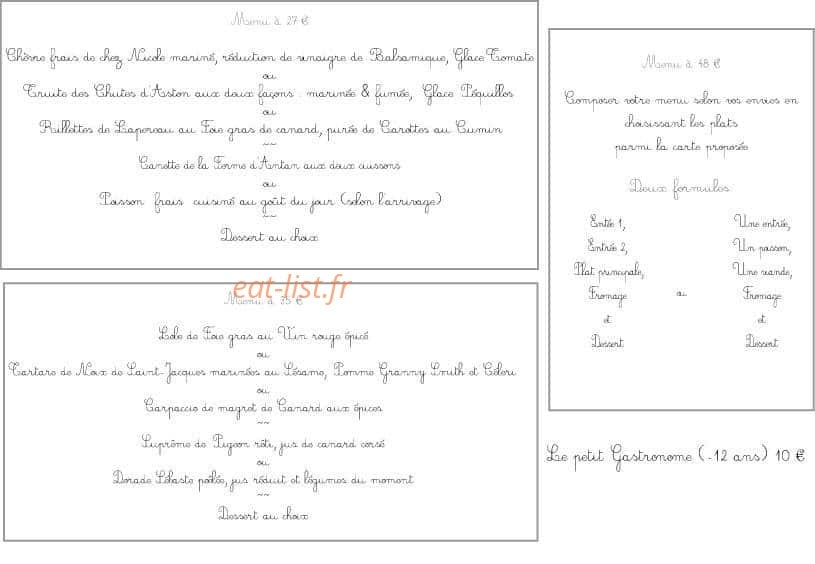 Menu à 27 €
Chèvre frais de chez Nicole mariné, réduction de vinaigre de Balsamique, Glace Tomate
ou
Truite des Chutes d'Aston aux deux façons : marinée & fumée, Glace Péquillos
ou
Rillettes de Lapereau au Foie gras de canard, purée de Carottes au Cumin
~~
Canette de la Ferme d'Antan aux deux cuissons
ou
Poisson frais cuisiné au goût du jour (selon l'arrivage)
~~
Dessert au choix
eat-list.fr
Menu à 35 €
Lobe de Foie gras au Vin rouge épicé
ou
Tartare de Noix de Saint-Jacques marinées au Sésame, Pomme Granny Smith et Céleri
ou
Carpaccio de magret de Canard aux épices
~~
Suprême de Pigeon rôti, jus de canard corsé
ou
Dorade Sébaste poêlée, jus réduit et légumes du moment
~~
Dessert au choix
Menu à 48 €
Composer votre menu selon vos envies en
choisissant les plats
parmi la carte proposée
Deux formules
Entée 1,
Entrée 2,
Plat principale,
Fromage
et
Dessert
ou
Une entrée,
Un poisson,
Une viande,
Fromage
et
Dessert
Le petit Gastronome (-12 ans) 10 €